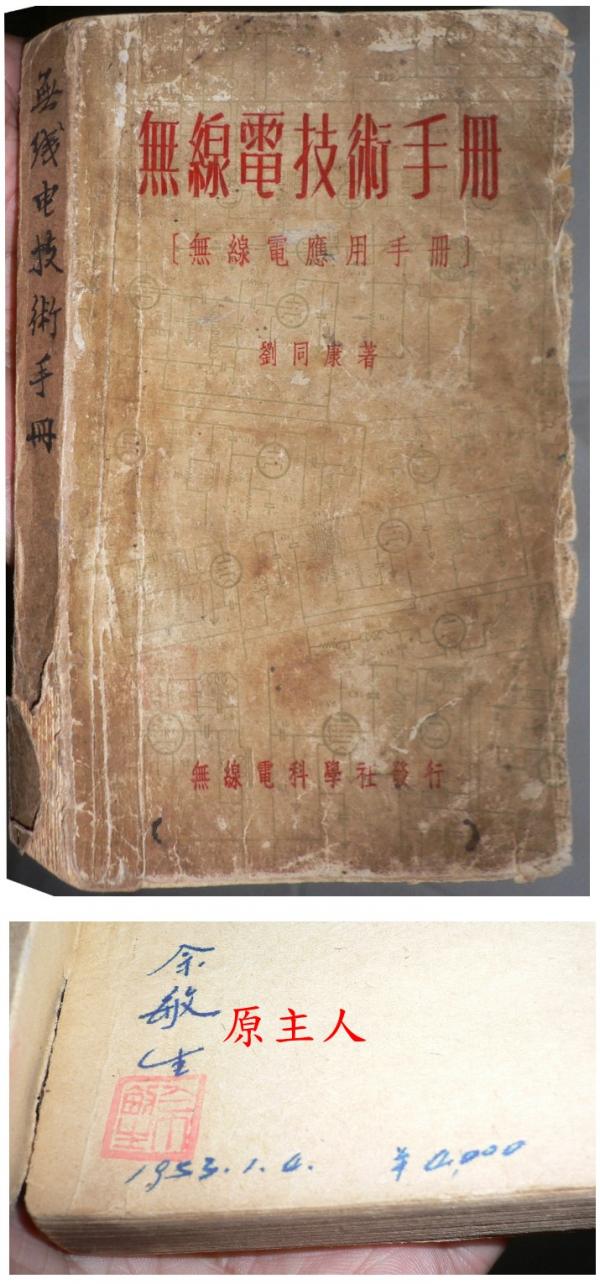 無线电技術手冊
無線電技術手冊
[無線電應用手冊]
劉同康著
無線電科學社發行
( )
余敏生
原主人
余敏生
1953.1.4.
¥4,000